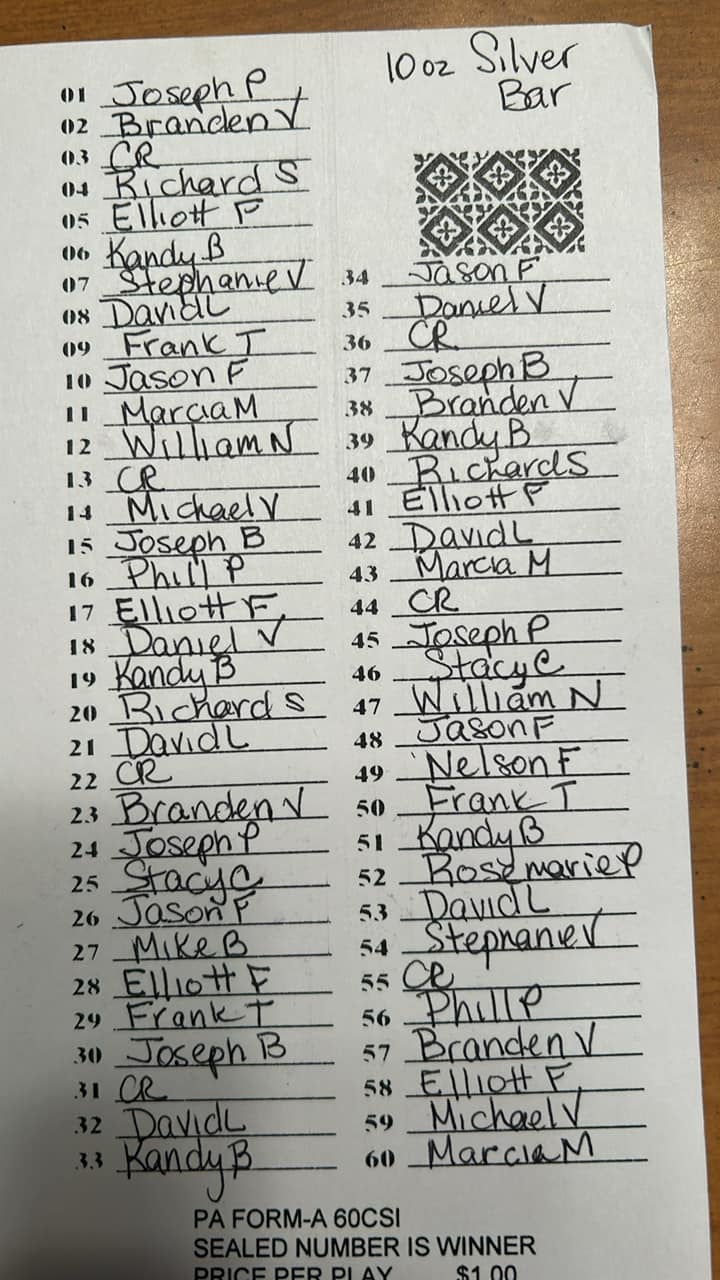 10 oz Silver
Bar
01 Joseph P
02 Branden V
03 CR
04 Richard S
05 Elliott F
06 Kandy B
07 Stephanie V
08 David L
09 Frank T
10 Jason F
11 Marcia M
12 William N
13 CR
14 Michael V
15 Joseph B
16 Phill P
17 Elliott F
18 Daniel V
19 Kandy B
20 Richard S
21 David L
22 CR
23 Branden V
24 Joseph P
25 Stacy C
26 Jason F
27 Mike B
28 Elliott F
29 Frank T
30 Joseph B
31 CR
32 David L
33 Kandy B
34 Jason F
35 Daniel V
36 CR
37 Joseph B
38 Branden V
39 Kandy B
40 Richard S
41 Elliott F
42 David L
43 Marcia M
44 CR
45 Joseph P
46 Stacy C
47 William N
48 Jason F
49 Nelson F
50 Frank T
51 Kandy B
52 Rosemarie P
53 David L
54 Stephanie V
55 CR
56 Phill P
57 Branden V
58 Elliott F
59 Michael V
60 Marcia M
PA FORM-A 60CSI
SEALED NUMBER IS WINNER
PRICE PER PLAY $1.00